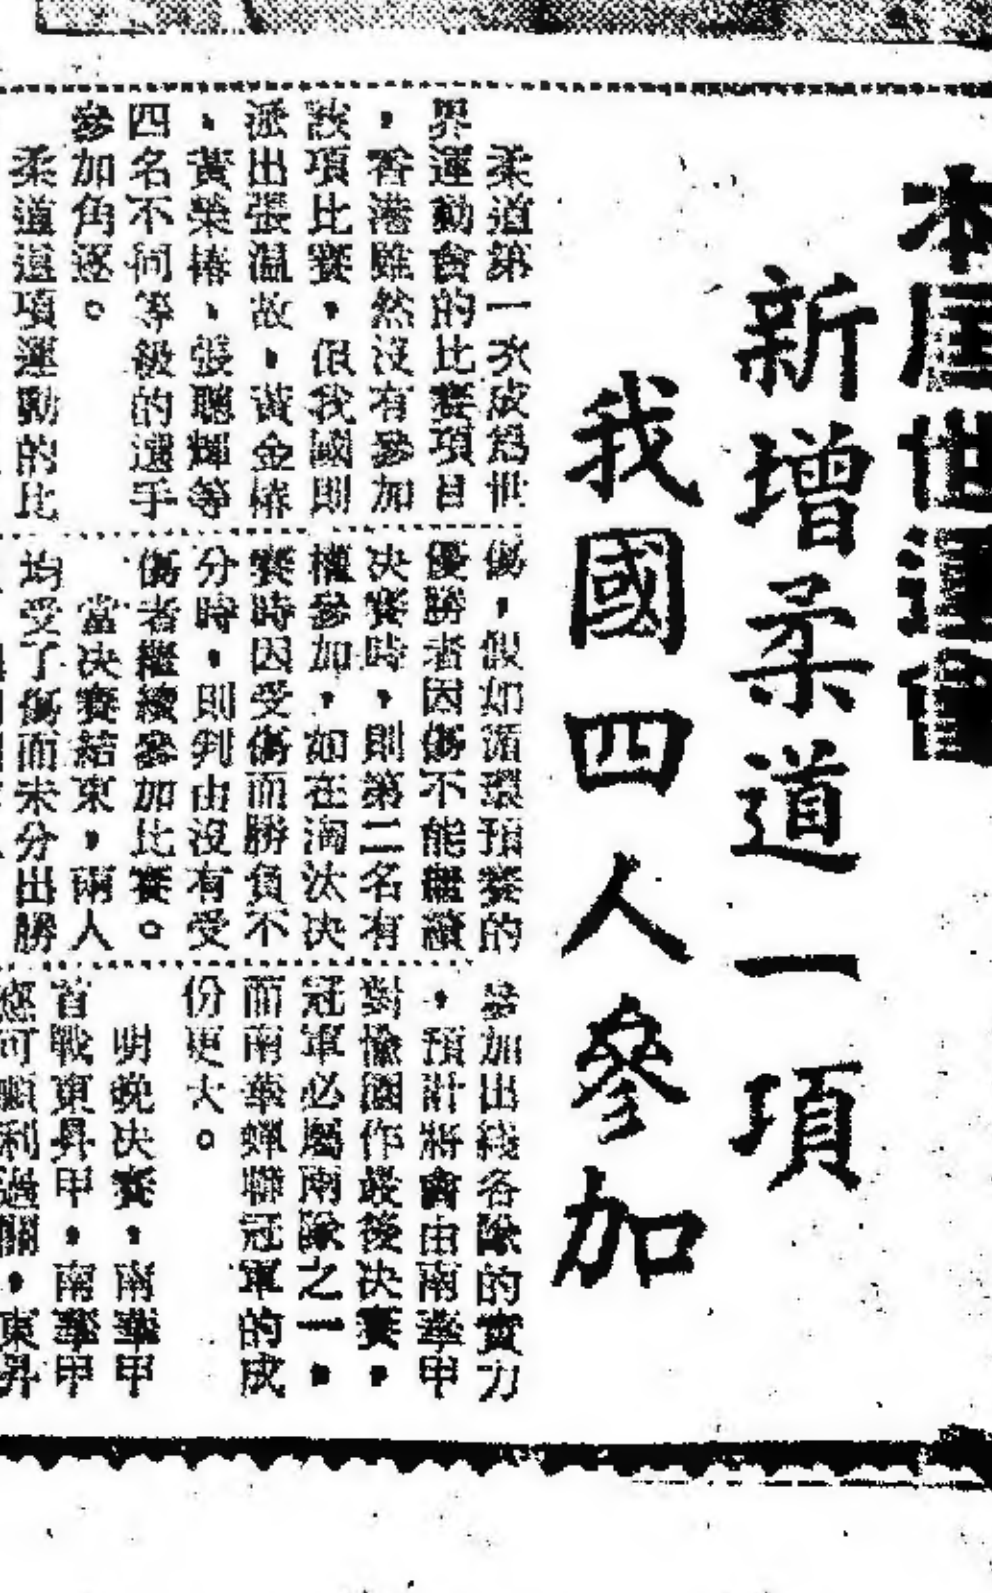 本屆世運會
新增柔道一項
我國四人參加
柔道第一次成為世
界運動會的比賽項目
，香港雖然沒有參加
該項比賽，但我國則
派出張溫故，黃金樁
、黃榮椿、張聰輝等
四名不同等級的選手
參加角逐。
柔道這項運動的比
傷，假如循環預賽的
優勝者因傷不能繼續
決賽時，則第二名有
權參加，如在淘汰决
賽時因受傷而勝負不
分時，則判由沒有受
傷者繼續參加比賽。
當决賽結束，兩人
均受了傷而未分出勝
參加出綫各隊的實力
，預計將會由南華甲
對愉園作最後决賽，
冠軍必屬南隊之一，
而南華蟬聯冠軍的成
份更大。
明晚决賽，南華甲
首戰東昇甲，南華甲
應可順利過關，東昇